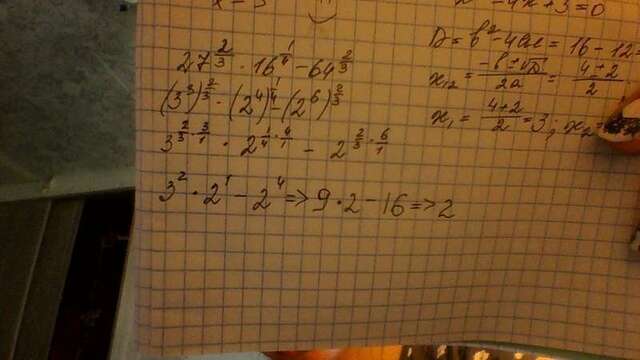 27^(2/3) · 16^(1/4) - 64^(2/3)
(3³)^(2/3) · (2⁴)^(1/4) - (2⁶)^(2/3)
3^(2/3 · 3/1) · 2^(1/4 · 4/1) - 2^(2/3 · 6/1)
3² · 2¹ - 2⁴ => 9 · 2 - 16 => 2
- 4x + 3 = 0
D = b² - 4ac = 16 - 12 =
x₁₂ = (-b ± √D)/2a = (4 ± 2)/2
x₁ = (4+2)/2 = 3; x₂ =